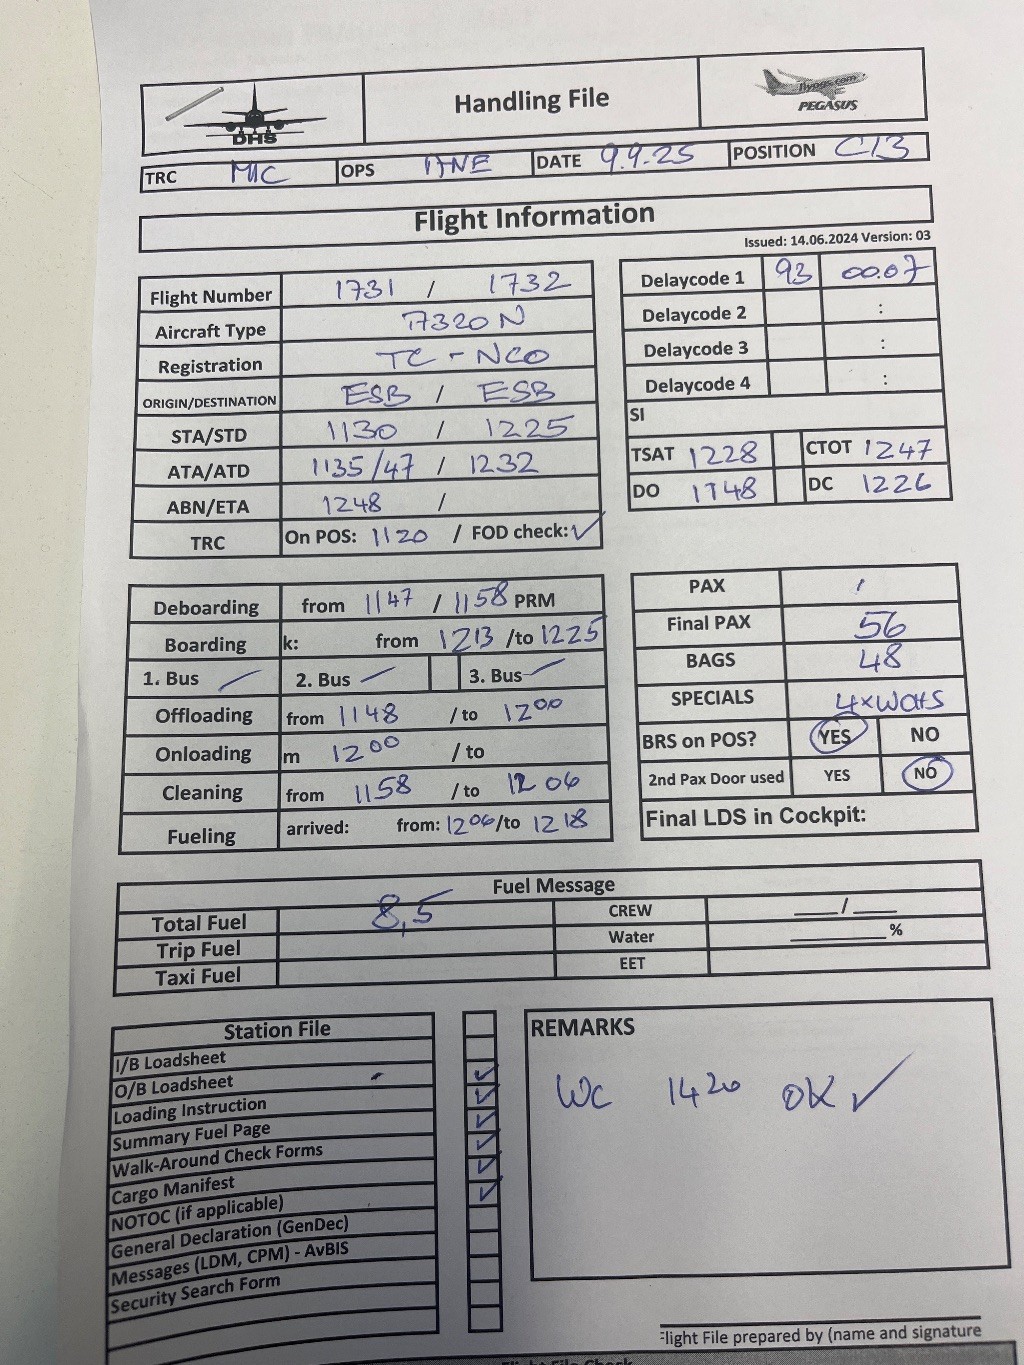 DHS
Handling File
flypgs.com
PEGASUS
TRC MIC OPS ANE DATE 9.9.25 POSITION C13
Flight Information
Issued: 14.06.2024 Version: 03
Flight Number 1731 / 1732
Aircraft Type A320N
Registration TC - NCO
ORIGIN/DESTINATION ESB / ESB
STA/STD 1130 / 1225
ATA/ATD 1135/47 / 1232
ABN/ETA 1248 /
TRC On POS: 1120 / FOD check: ✓
Delaycode 1 93 00:07
Delaycode 2 :
Delaycode 3 :
Delaycode 4 :
SI
TSAT 1228 CTOT 1247
DO 1148 DC 1226
Deboarding from 1147 / 1158 PRM
Boarding k: from 1213 /to 1225
1. Bus 2. Bus 3. Bus
Offloading from 1148 / to 1200
Onloading m 1200 / to
Cleaning from 1158 / to 1206
Fueling arrived: from: 1206/to 1218
PAX /
Final PAX 56
BAGS 48
SPECIALS 4x
BRS on POS? YES NO
2nd Pax Door used YES NO
Final LDS in Cockpit:
Fuel Message
Total Fuel 8,5 CREW ___/___
Trip Fuel Water ______%
Taxi Fuel EET
Station File
I/B Loadsheet
O/B Loadsheet
Loading Instruction ✓
Summary Fuel Page ✓
Walk-Around Check Forms ✓
Cargo Manifest ✓
NOTOC (if applicable) ✓
General Declaration (GenDec) ✓
Messages (LDM, CPM) - AvBIS
Security Search Form
REMARKS
WC 1420 OK ✓
light File prepared by (name and signature